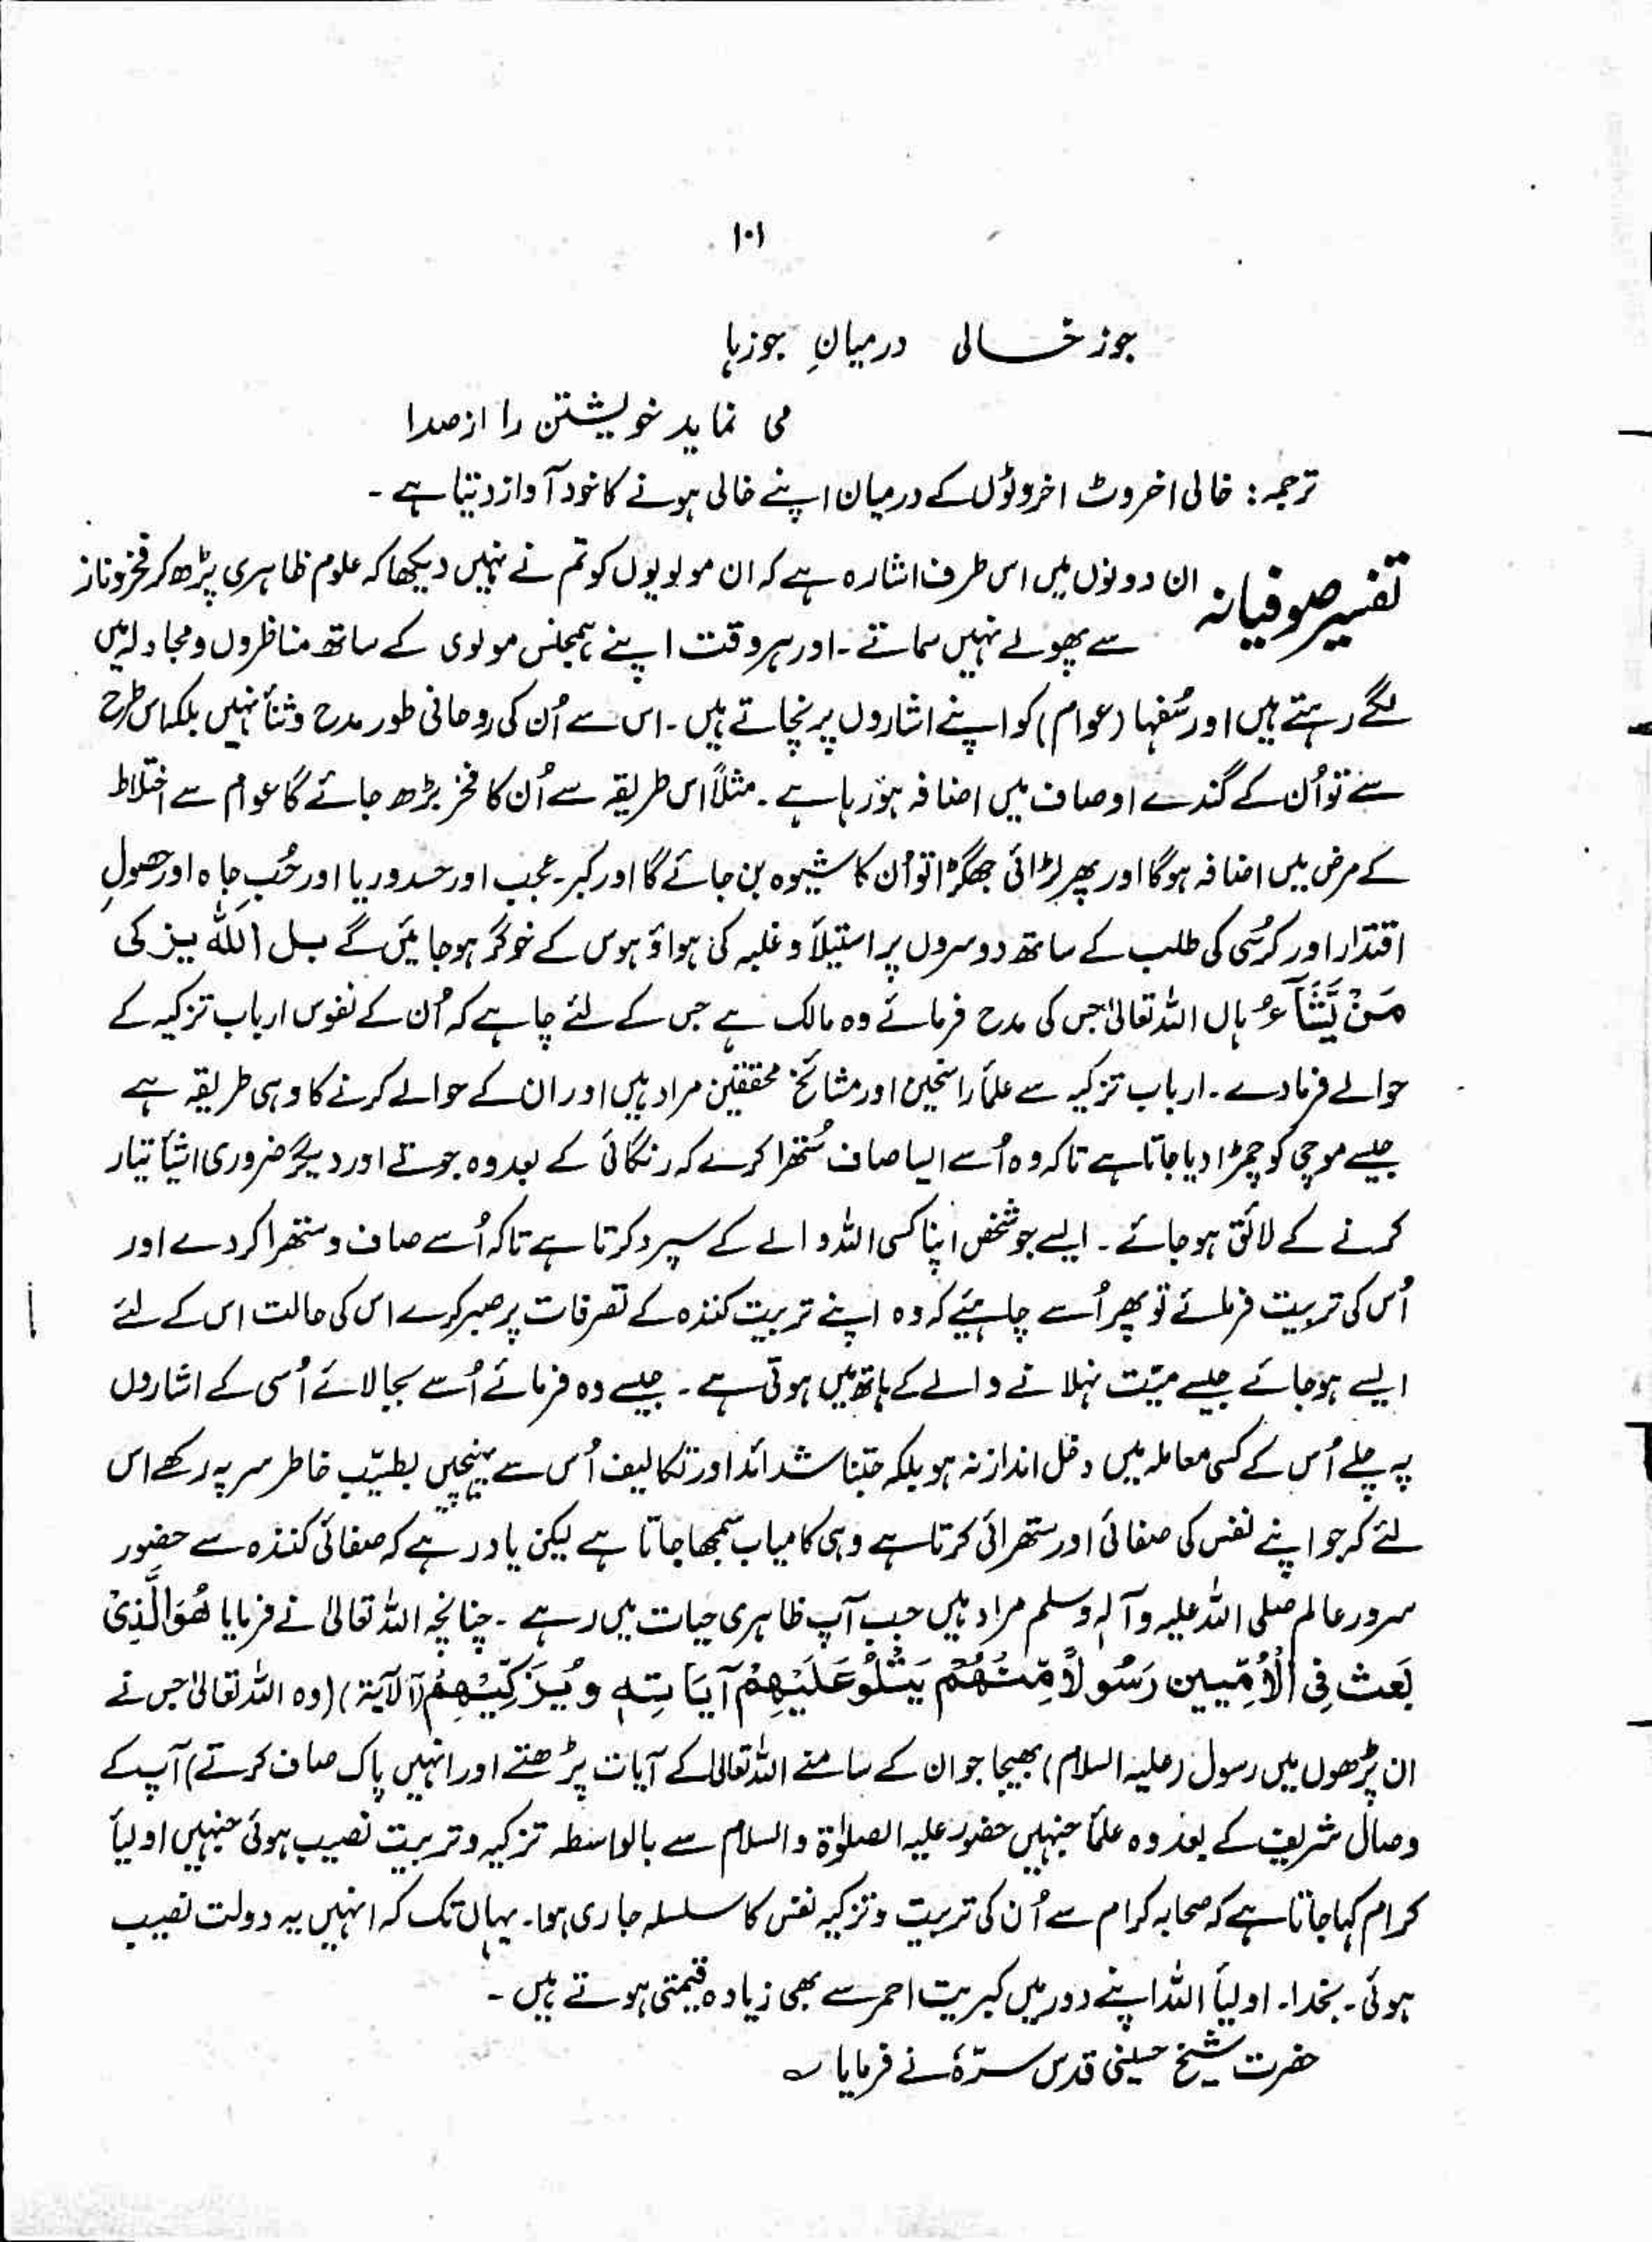 ۱۰۱
جوز خالی درمیانِ جوزہا
می نماید خویشتن را از صدا
ترجمہ: خالی اخروٹ اخروٹوں کے درمیان اپنے خالی ہونے کا خود آواز دیتا ہے۔
تفسیر صوفیانہ ان دونوں میں اس طرف اشارہ ہے کہ ان مولویوں کو تم نے نہیں دیکھا کہ علوم ظاہری پڑھ کر فخر و ناز
سے پھولے نہیں سماتے۔ اور ہر وقت اپنے ہمجنس مولوی کے ساتھ مناظروں و مجادلہ میں
لگے رہتے ہیں اور سُفہا (عوام) کو اپنے اشاروں پر نچاتے ہیں۔ اس سے اُن کی روحانی طور مدح و ثنأ نہیں بلکہ اس طرح
سے تو اُن کے گندے اوصاف میں اضافہ ہو رہا ہے۔ مثلاً اس طریقہ سے اُن کا فخر بڑھ جائے گا عوام سے اختلاط
کے مرض میں اضافہ ہوگا اور پھر لڑائی جھگڑا تو اُن کا شیوہ بن جائے گا اور کبر۔ عجب اور حسد و ریا اور حُبِ جاہ اور حصولِ
اقتدار اور کرُسی کی طلب کے ساتھ دوسروں پر استیلأ و غلبہ کی ہواؤ ہوس کے خوگر ہو جائیں گے بل اللهُ یزکی
مَنْ یَّشَآءُ ہاں اللہ تعالیٰ جس کی مدح فرمائے وہ مالک ہے جس کے لئے چاہے کہ اُن کے نفوس ارباب تزکیہ کے
حوالے فرما دے۔ ارباب تزکیہ سے علمأ راسخین اور مشائخ محققین مراد ہیں اور ان کے حوالے کرنے کا وہی طریقہ ہے
جیسے موچی کو چمڑا دیا جاتا ہے تاکہ وہ اُسے ایسا صاف سُتھرا کرے کہ رنگائی کے بعد وہ جوتے اور دیگر ضروری اشیأ تیار
کرنے کے لائق ہو جائے۔ ایسے جو شخص اپنا کسی اللہ والے کے سپرد کرتا ہے تاکہ اُسے صاف و ستھرا کر دے اور
اُس کی تربیت فرمائے تو پھر اُسے چاہیئے کہ وہ اپنے تربیت کنندہ کے تصرفات پر صبر کرے اس کی حالت اس کے لئے
ایسے ہو جائے جیسے میّت نہلانے والے کے ہاتھ میں ہوتی ہے۔ جیسے وہ فرمائے اُسے بجا لائے اُسی کے اشاروں
پہ چلے اُس کے کسی معاملہ میں دخل انداز نہ ہو بلکہ جتنا شدائد اور تکالیف اُس سے پہنچیں بطیّب خاطر سر پہ رکھے اس
لئے کہ جو اپنے نفس کی صفائی اور ستھرائی کرتا ہے وہی کامیاب سمجھا جاتا ہے لیکن یاد رہے کہ صفائی کنندہ سے حضور
سرور عالم صلی اللہ علیہ وآلہٖ وسلم مراد ہیں جب آپ ظاہری حیات میں رہے۔ چنانچہ اللہ تعالیٰ نے فرمایا ھُوَالَّذِیْ
بَعَثَ فِی الْاُمِّیین رَسُولاً مِّنْهُمْ یَتْلُوْ عَلَیْهِمْ آیَاتِهٖ وَ یُزَکِّیْهِمْ (الآیۃ) (وہ اللہ تعالیٰ جس نے
ان پڑھوں میں رسول (علیہ السلام) بھیجا جو ان کے سامنے اللہ تعالیٰ کے آیات پڑھتے اور انہیں پاک صاف کرتے) آپ کے
وصال شریف کے بعد وہ علمأ جنہیں حضور علیہ الصلوٰۃ والسلام سے بالواسطہ تزکیہ و تربیت نصیب ہوئی جنہیں اولیأ
کرام کہا جاتا ہے کہ صحابہ کرام سے اُن کی تربیت و تزکیہ نفس کا سلسلہ جاری ہوا۔ یہاں تک کہ انہیں یہ دولت نصیب
ہوئی۔ بخدا۔ اولیأ اللہ اپنے دور میں کبریت احمر سے بھی زیادہ قیمتی ہوتے ہیں۔
حضرت شیخ حسینی قدس سرّہٗ نے فرمایا ؎